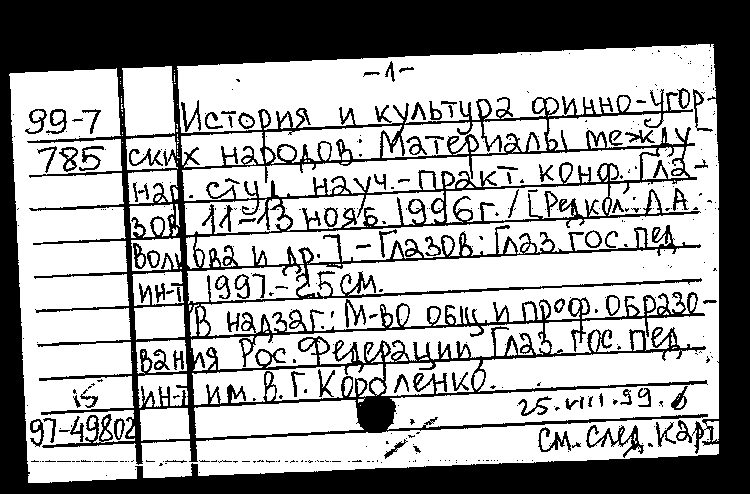 -1-
99-7 История и культура финно-угор-
785 ских народов: Материалы между-
нар. студ. науч.-практ. конф., Гла-
зов, 11-13 нояб. 1996 г. / [Редкол.: Л.А.
Волкова и др.]. - Глазов: Глаз. гос. пед.
ин-т, 1997. - 25 см.
В надзаг.: М-во общ. и проф. образо-
вания Рос. Федерации, Глаз. гос. пед.
ин-т им. В. Г. Короленко.
is 25.VIII.99.
97-49802 См. след. карт